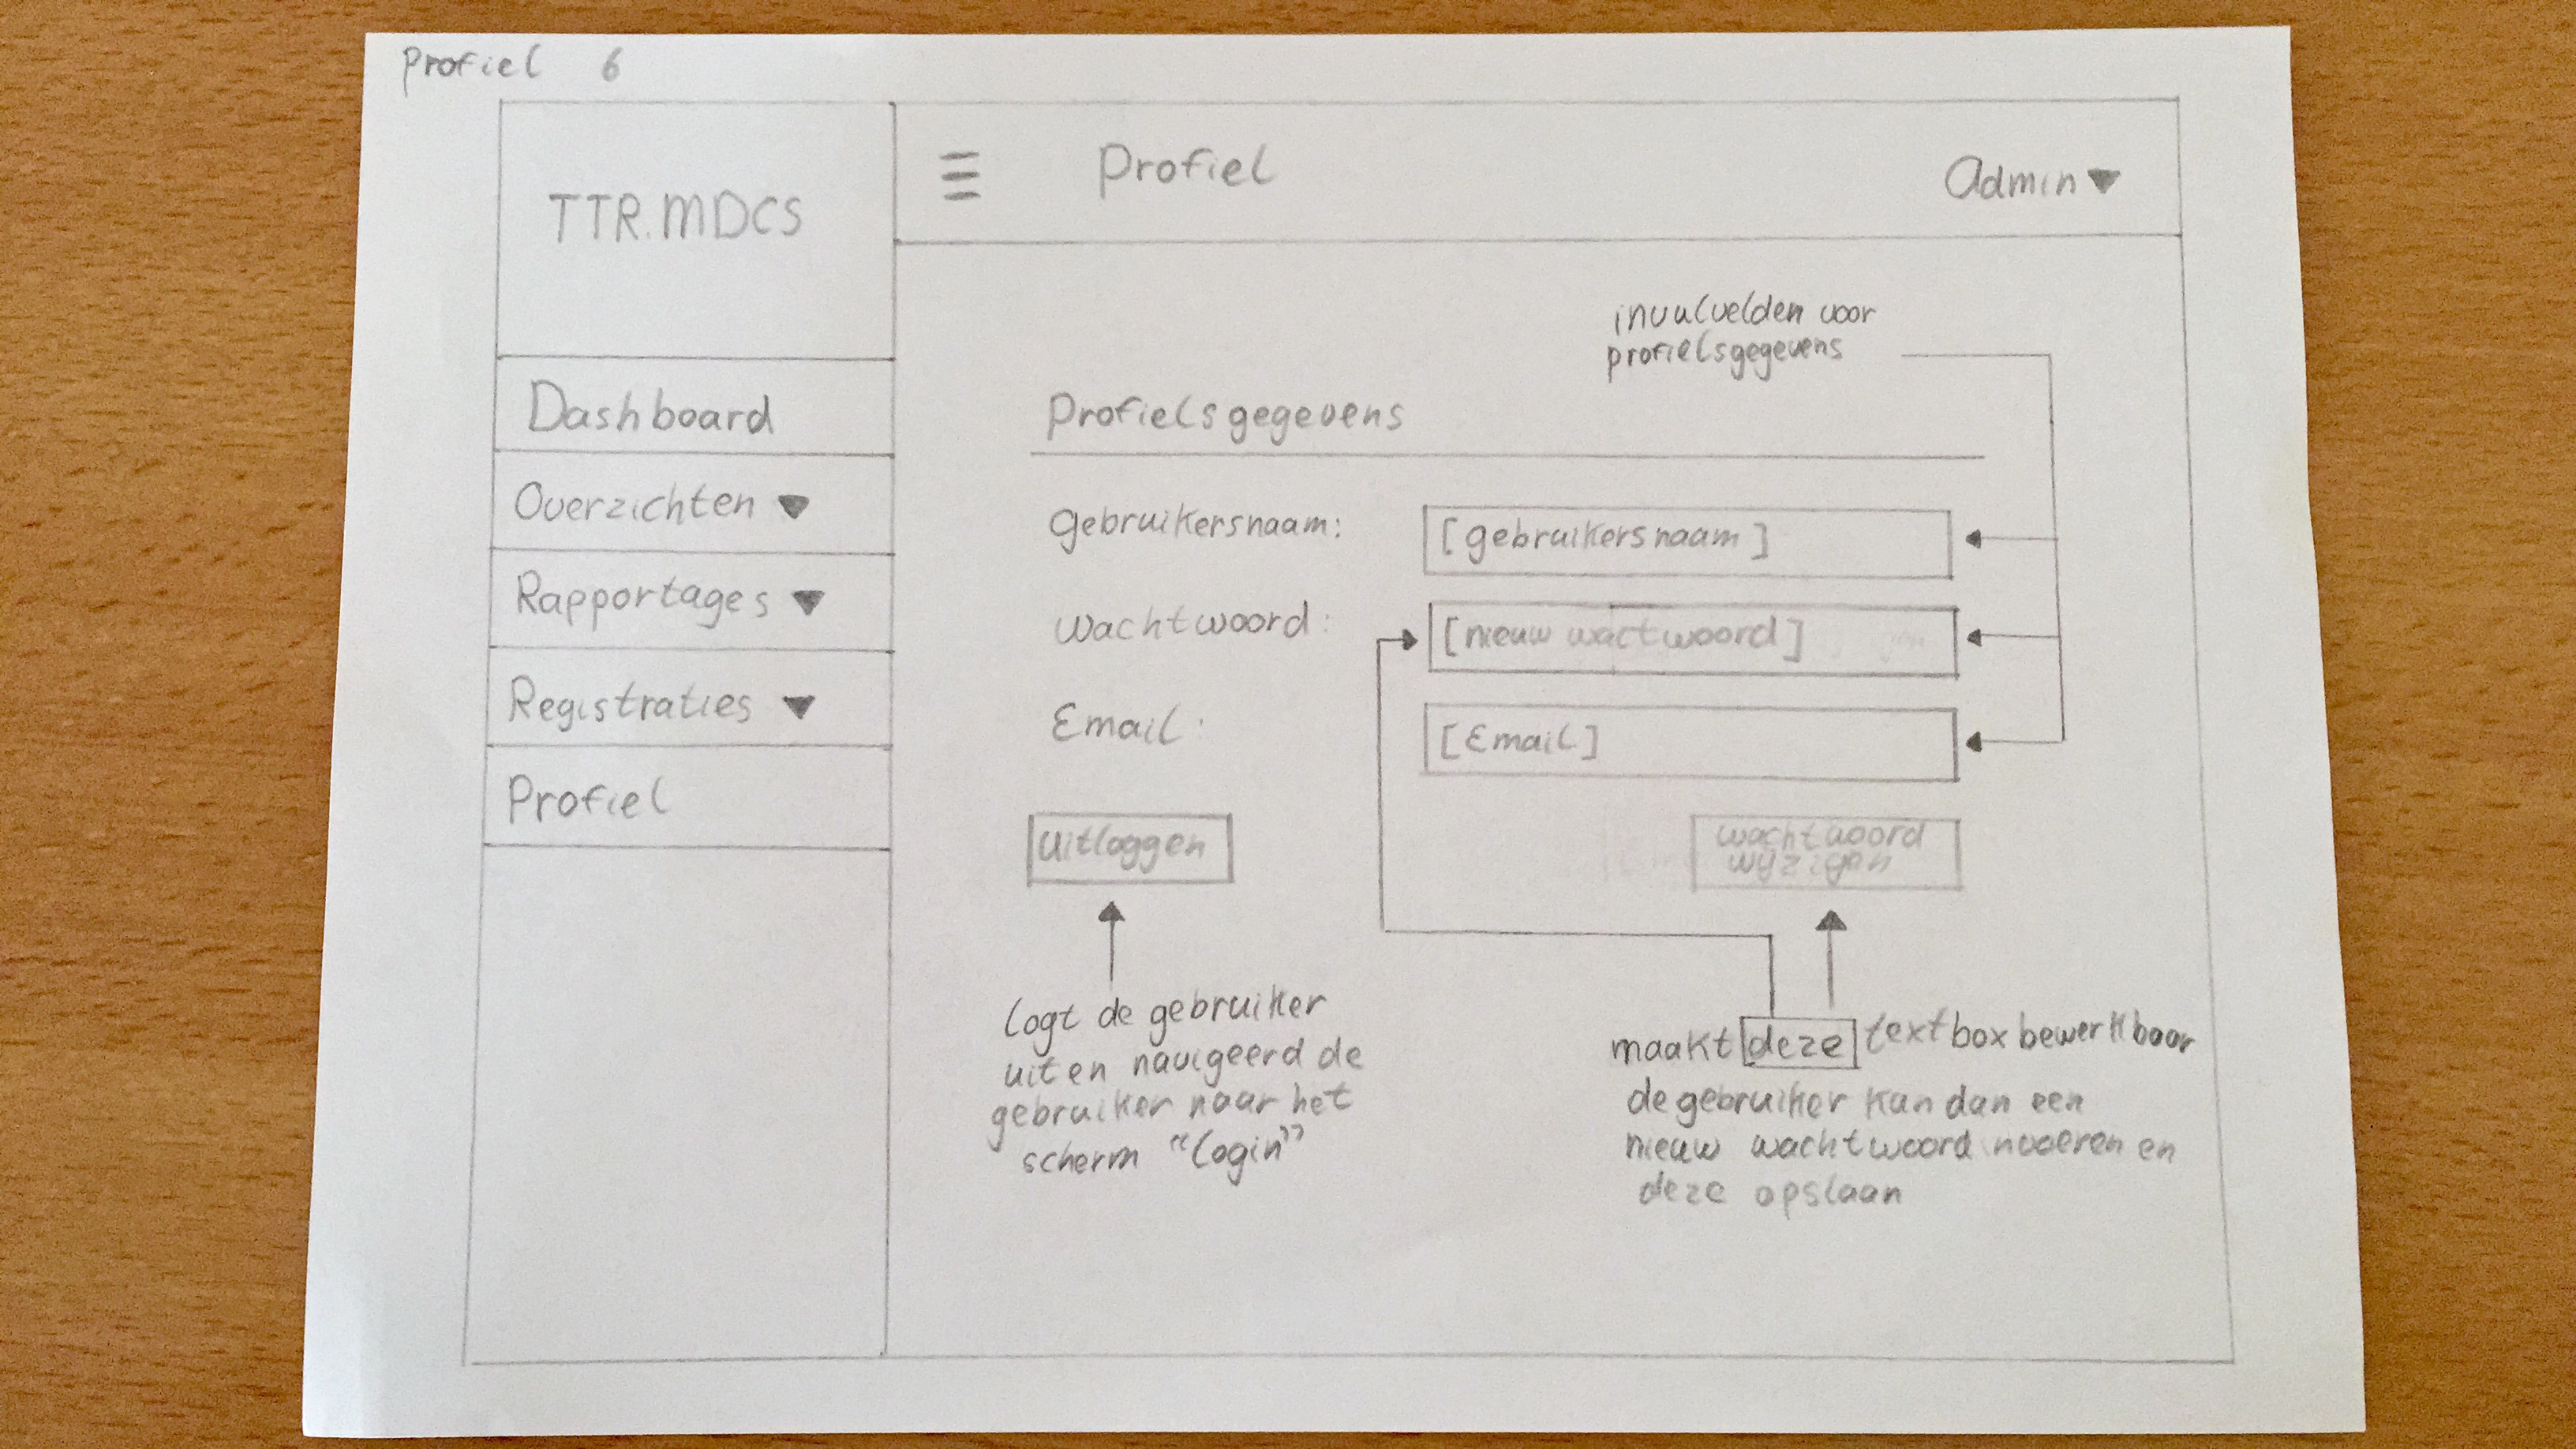 Profiel 6
TTR.MDCS
Profiel
Admin
Dashboard
Overzichten
Rapportages
Registraties
Profiel
invulvelden voor
profielsgegevens
Profielsgegevens
Gebruikersnaam:
[gebruikersnaam]
Wachtwoord:
[nieuw wactwoord]
Email:
[Email]
Uitloggen
wachtwoord
wijzigen
logt de gebruiker
uit en navigeerd de
gebruiker naar het
scherm "login"
maakt deze textbox bewerkbaar
de gebruiker kan dan een
nieuw wachtwoord invoeren en
deze opslaan